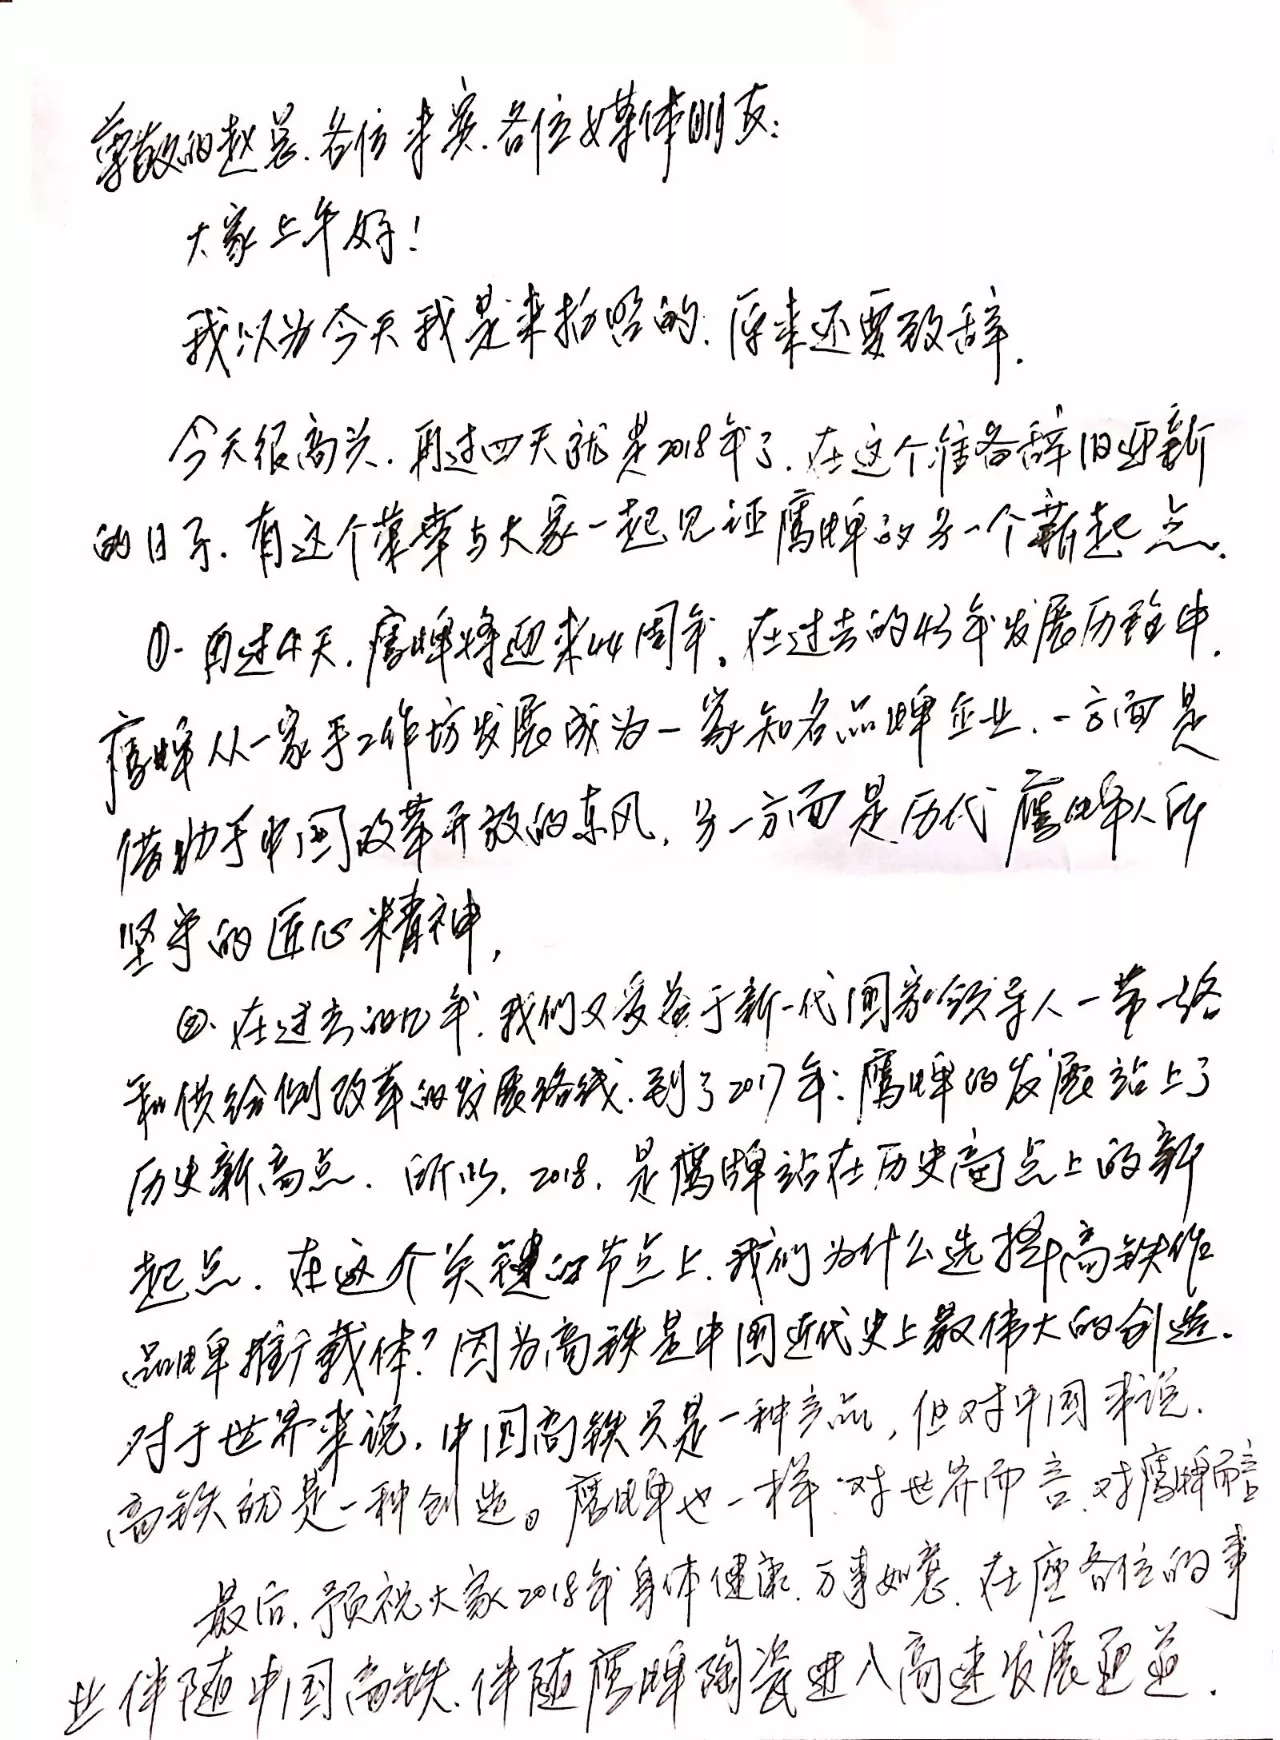 尊敬的赵总、各位来宾、各位媒体朋友：
大家上午好！
我以为今天我是来拍照的、原来还要致辞.
今天很高兴、再过四天就是2018年了、在这个准备辞旧迎新
的日子、有这个荣幸与大家一起见证鹰牌的另一个新起点.
①、再过4天、鹰牌将迎来44周年。在过去的43年发展历程中.
鹰牌从一家手工作坊发展成为一家知名品牌企业、一方面是
借助于中国改革开放的东风、另一方面是历代鹰牌人所
坚守的匠心精神,
②、在过去的几年、我们又受益于新一代国家领导人一带一路
和供给侧改革的发展路线、到了2017年、鹰牌的发展站上了
历史新高点、所以、2018、是鹰牌站在历史高点上的新
起点、在这个关键的节点上、我们为什么选择高铁作
品牌推广载体？因为高铁是中国近代史上最伟大的创造.
对于世界来说、中国高铁只是一种产品, 但对中国来说、
高铁就是一种创造。鹰牌也一样、对世界而言、对鹰牌而言
最后、预祝大家2018年身体健康、万事如意、在座各位的事
业伴随中国高铁、伴随鹰牌陶瓷进入高速发展通道.